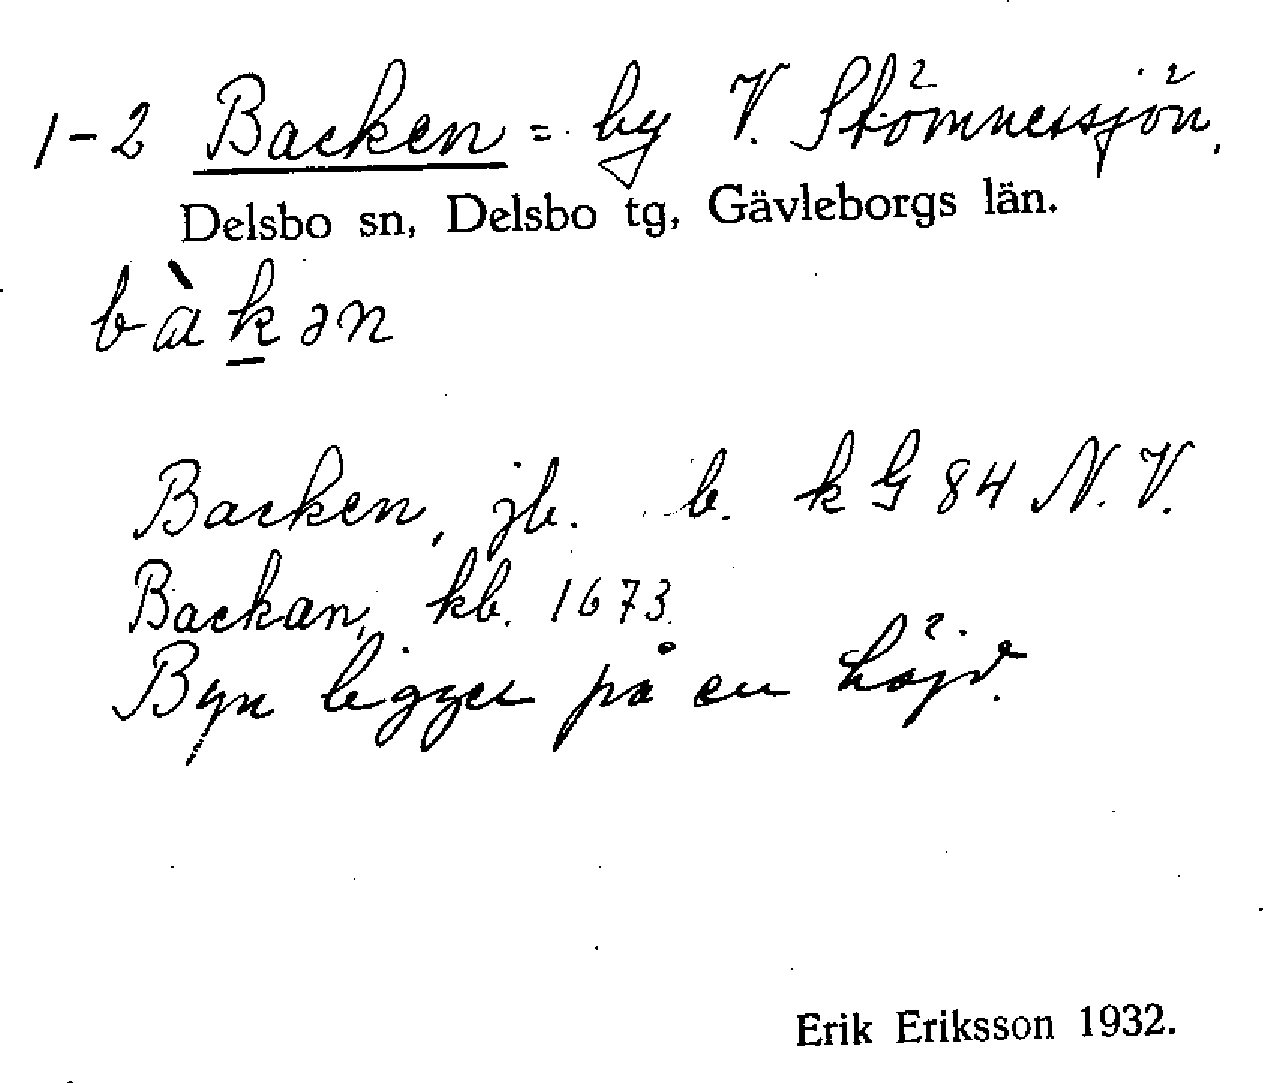 1-2 Backen = by V. Stömnessjön.
Delsbo sn, Delsbo tg, Gävleborgs län.
bàkən
Backen, jb. b. k G 84 N. V.
Backan, kb. 1673.
Byn ligger på en höjd.
Erik Eriksson 1932.